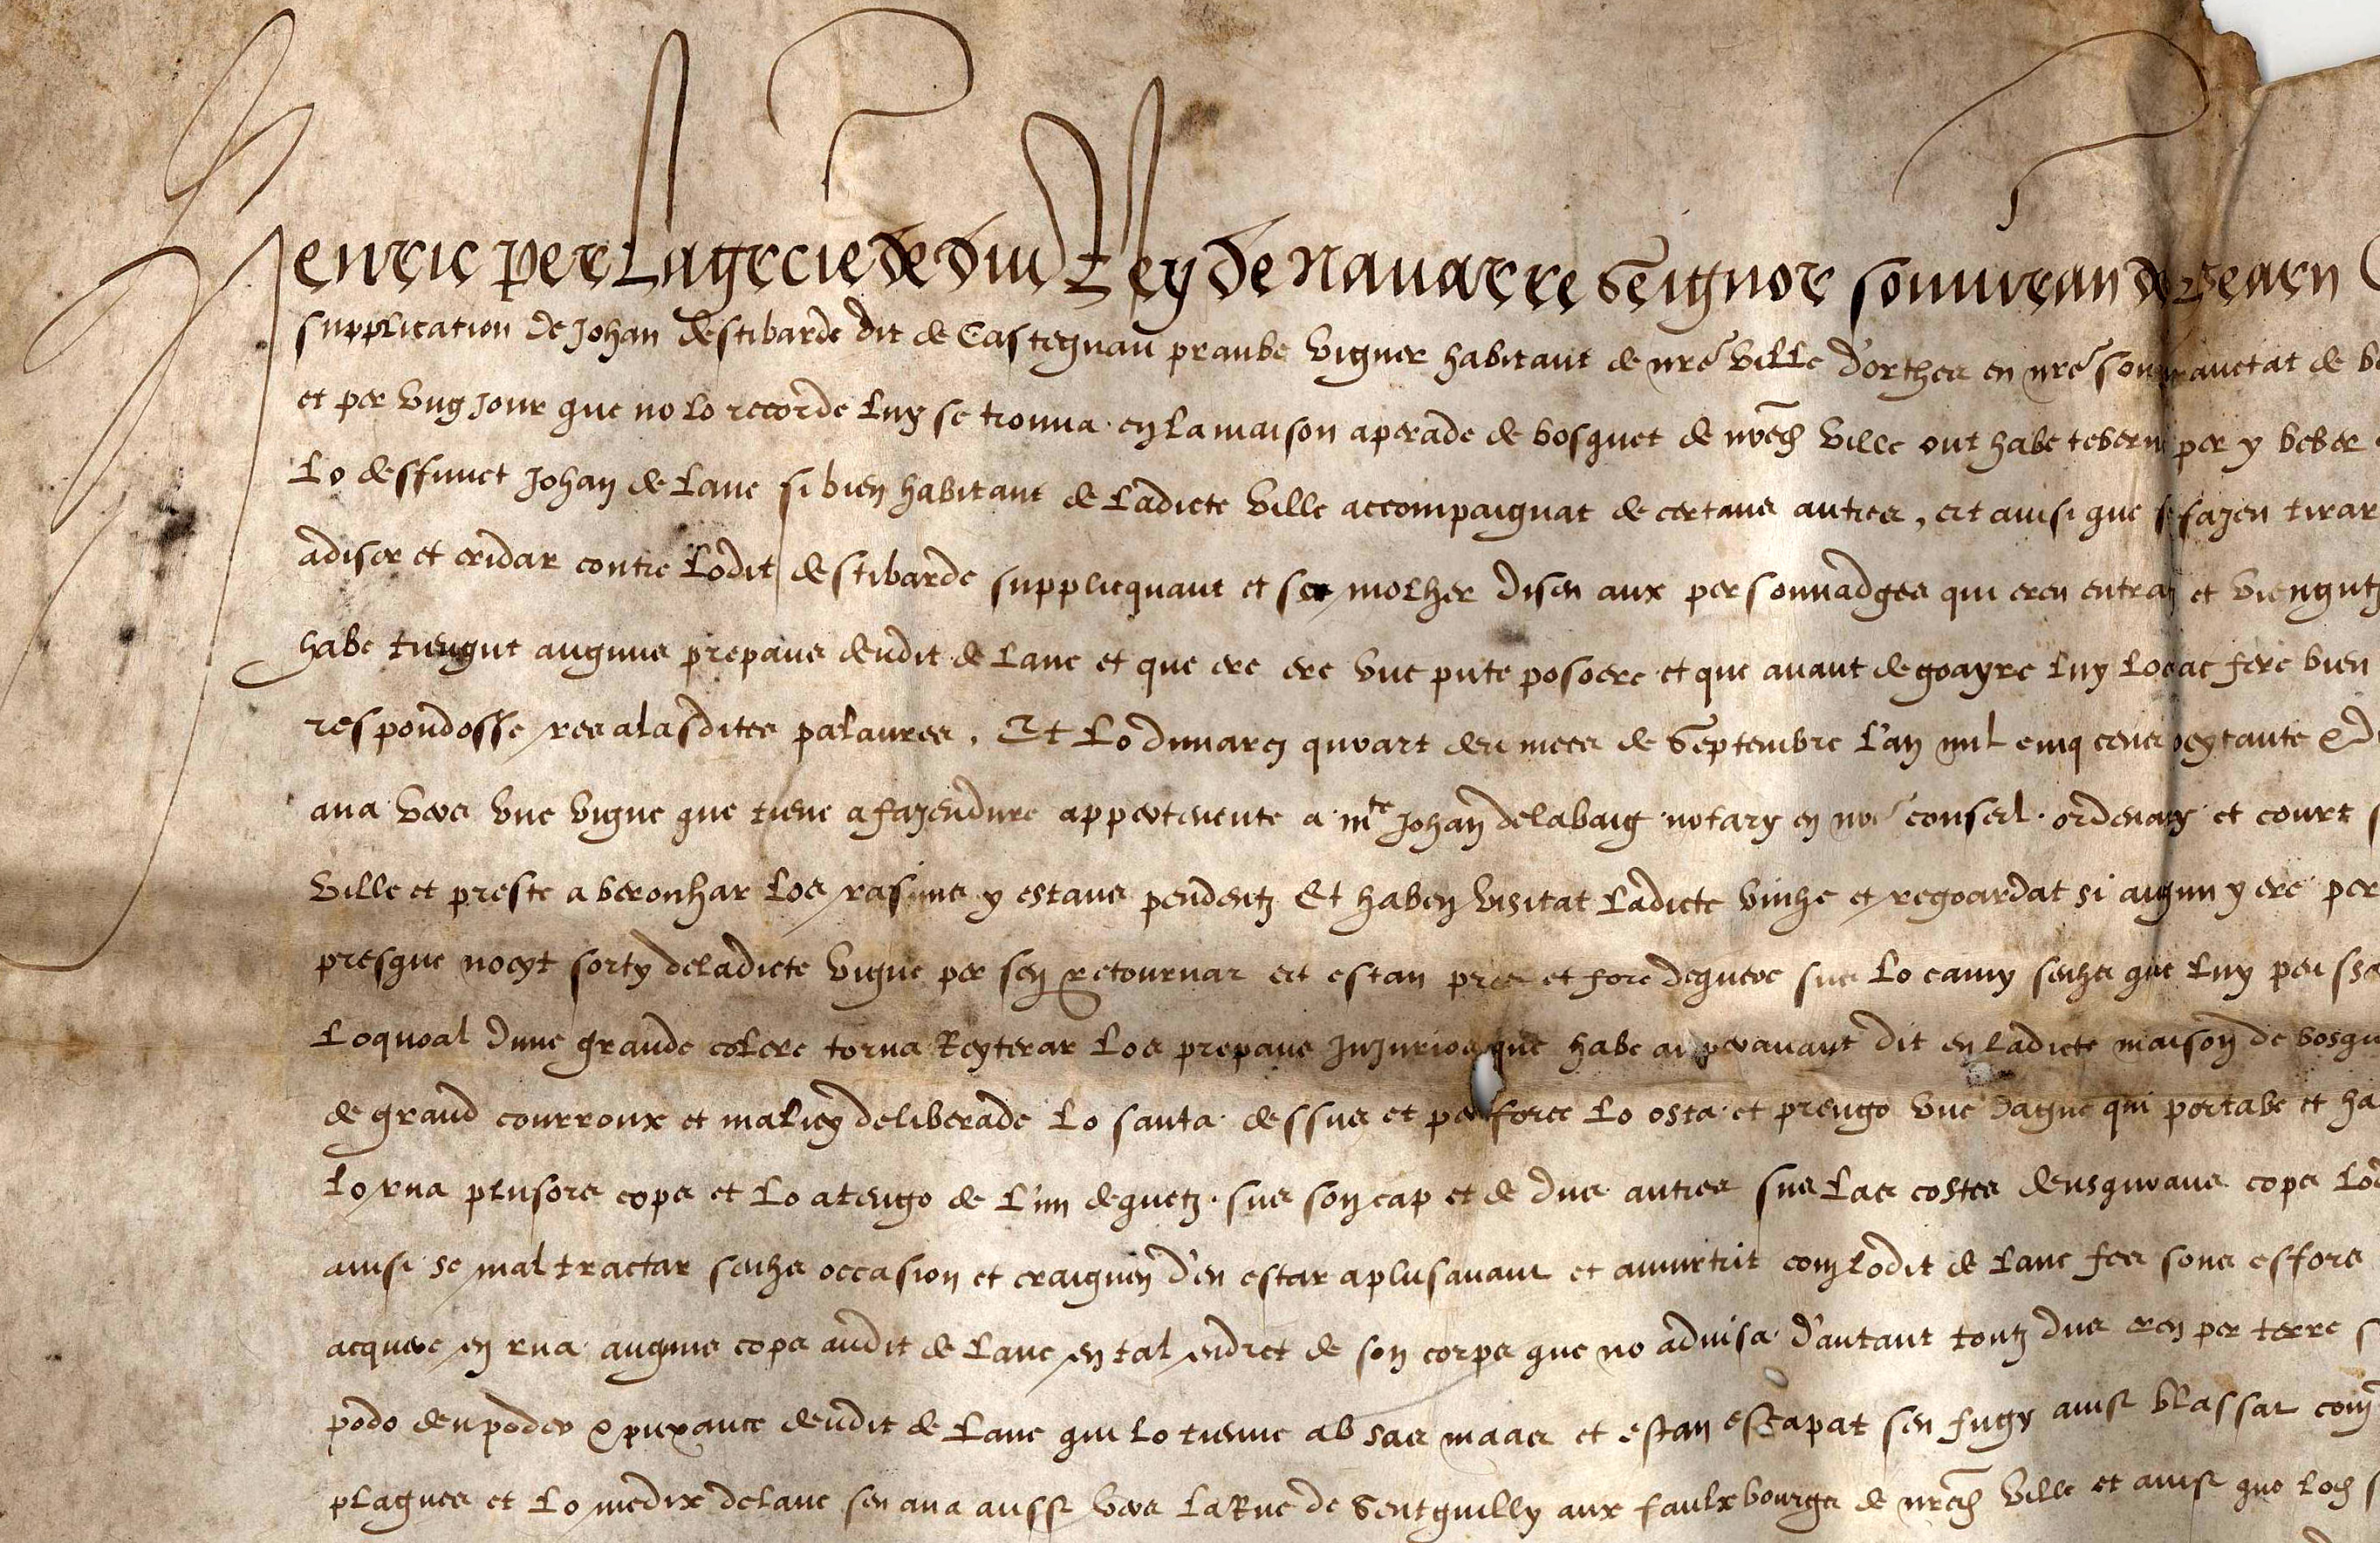 Henric per La grcie de Diu Rey de Navarre Seignor souviran de Bearn
supplication de Johan destibarde dit de Castegnau praube vigner habitant de nre ville d'orthes en nre souviranetat de
et per ung jour que no lo recorde luy se trouva en la maison aperade de bosquet de nred ville ont habe teberne per y beber
Lo deffunct Johan de Lane si bien habitant de Ladicte ville accompaignat de certans autres, et ainsi que se fazen tirar
adiser et cridar contre Lodit destibarde supplicquant et sa molher disen aux personnadges qui eren entratz et viengutz
habe tiengut augune prepaus deudit de Lane et que ere ere une pute posoere et que avant de goayre luy Lo fere bien
respondosse res a lasdites palaures, Et Lo dimartz quoart deu mees de Septembre L'an mil cinq cens seytante
ana vers une vigne que tiene a fazendure appertenente a mte Johan de labaig notary en nre conseil ordenary et court
ville et preste a beronhar Los rasims y estans pendentz Et haben visitat Ladicte vinhe et regoardat si augun y ere per
presque noeyt sorty de ladicte vigne per sen retournar et estan pres et fore dequere sus Lo camy senhs que Luy penssa
Loquoal d'une grande colere torna Reyterar Los prepaus Injurios que habe auparavant dit en Ladicte maison de bosqu
de grand courroux et malici deliberade Lo sauta dessus et per force Lo osta et prengo une dague qui portabe et
Lo rua plusors cops et Lo atengo de L'un dequetz sus son cap et de dus autres sus Las costes deusquoaus cops
ainsi se mal tractar senhs occasion et craignen d'en estar a plus avant et amurtrit com Lodit de Lane fes sons effors
acquere en rua auguns cops audit de Lane en tal endret de son corps que no advisa d'autant toutz dus eren per terre
podo deu poder & puxance deudit de Lane qui Lo tiene ab sas maas et estan escapat sen fugy ainsi blassat com
plagues et Lo medix de Lane sen ana aussi vers La Rue de Sentguilly aux faulxbourgs de nred ville et ainsi que Lod